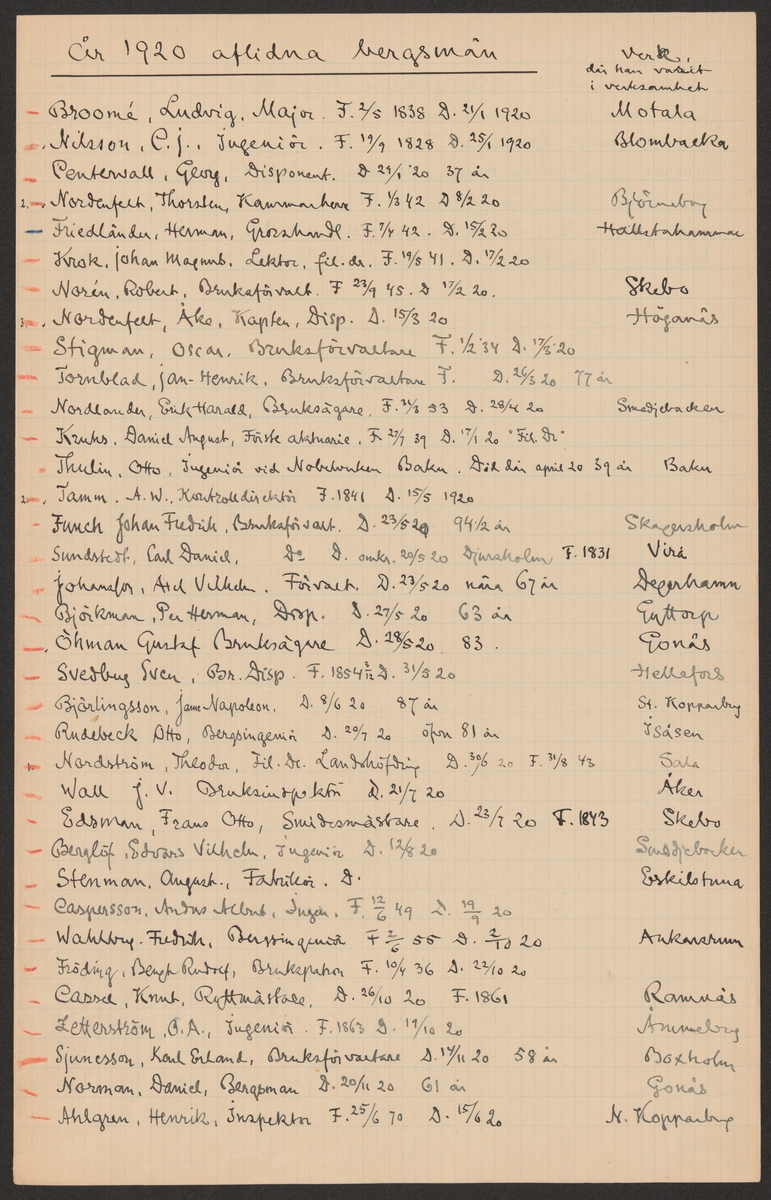 År 1920 aflidna bergsmän
Verk,
där han varit
i verksamhet
Broomé, Ludvig, Major. F. 2/5 1838 D. 21/1 1920 Motala
Nilsson, C.J., Ingeniör. F. 19/9 1828 D. 25/1 1920 Blombacka
Centerwall, Georg, Disponent. D 29/1 20 37 år
2. Nordenfelt, Thorsten, Kammarherre F. 1/3 42 D 8/2 20 Björneborg
Friedländer, Herman, Grosshandl. F. 7/4 42. D. 15/2 20 Hallstahammar
Krok, Johan Magnus. Lektor, fil. dr. F. 19/5 41. D. 17/2 20
Norén, Robert, Bruksförvalt. F 23/9 45. D 17/2 20. Skebo
3. Nordenfelt, Åke, Kapten, Disp. D. 15/3 20 Höganäs
Stigman, Oscar, Bruksförvaltare F. 1/2 34 D. 17/3 20
Tornblad, Jan-Henrik, Bruksförvaltare F. D. 26/3 20 77 år
Nordlander, Erik Harald, Bruksägare. F. 31/3 53 D. 28/4 20 Smedjebacken
Kruhs, Daniel August, Förste aktuarie, F. 27/7 39 D. 17/1 20 "Fil. Dr"
Thulin, Otto, Ingeniör vid Nobelverken Baku. Död där april 20 39 år Baku
2. Tamm. A.W., Kontrolldirektör F. 1841 D. 15/5 1920
Funch Johan Fredrik, Bruksförvalt. D. 23/5 20 94 1/2 år Skagersholm
Sundstedt, Carl Daniel, Do D. omkr. 20/5 20 Djursholm F. 1831 Virå
Johansson, Axel Vilhelm. Förvalt. D. 23/5 20 nära 67 år Degerhamn
Björkman, Per Herman, Disp. D. 27/5 20 63 år Gyttorp
Öhman Gustaf Bruksägare D. 28/5 20. 83. Gonäs
Svedberg Sven, Br. Disp. F. 1854 2/12 D. 31/5 20 Hellefors
Björlingsson, Jame Napoleon. D. 8/6 20 87 år St. Kopparberg
Rudebeck Otto, Bergsingeniör D. 20/7 20 öfver 81 år Isåsen
Nordström, Theodor, Fil. Dr. Landshöfding D. 30/6 20 F. 31/8 43 Sala
Wall J.V. Bruksinspektör D. 21/7 20 Åker
Edsman, Frans Otto, Smidesmästare. D. 23/7 20 F. 1843 Skebo
Berglöf, Edvard Vilhelm, Ingeniör D. 12/8 20 Smedjebacken
Stenman, August., Fabrikör. D. Eskilstuna
Caspersson, Anders Albert, Ingen. F. 12/6 49 D. 19/9 20
Wahlberg. Fredrik, Bergsingeniör F 2/6 55 D. 2/10 20 Ankarsrum
Fröding, Bengt Rudolf, Brukspatron F. 10/4 36 D. 22/10 20
Cassel, Knut, Ryttmästare, D. 26/10 20 F. 1861 Ramnäs
Zetterström, O.A., Ingeniör. F. 1863 D. 19/10 20 Ämmeberg
Sjunesson, Karl Erland, Bruksförvaltare D. 14/11 20 58 år Boxholm
Norman, Daniel, Bergsman D. 20/11 20 61 år Gonäs
Ahlgren, Henrik, Inspektor F. 25/6 70 D. 15/6 20 N. Kopparberg